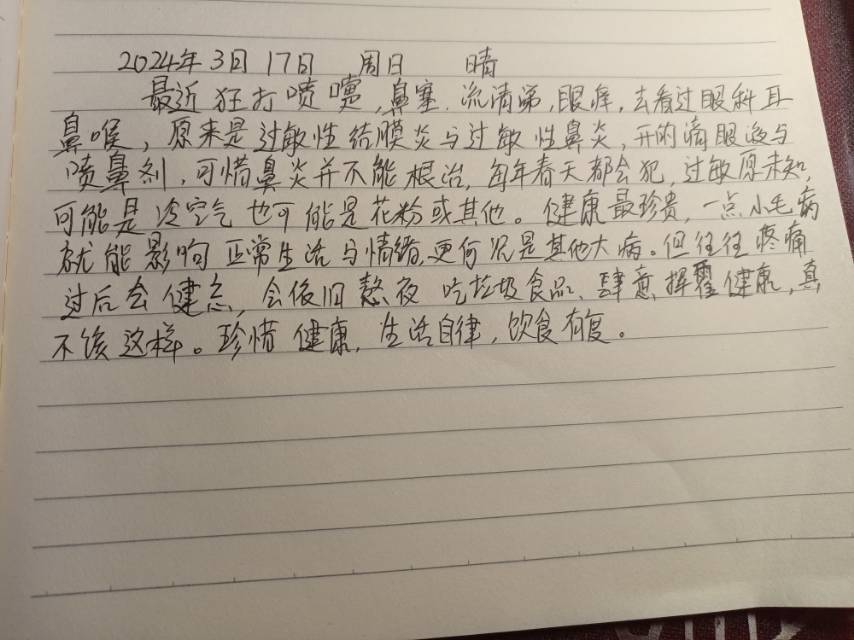 2024年3月17日 周日 晴
最近狂打喷嚏,鼻塞,流清涕,眼痒,去看过眼科耳
鼻喉,原来是过敏性结膜炎与过敏性鼻炎,开的滴眼液与
喷鼻剂,可惜鼻炎并不能根治,每年春天都会犯,过敏原未知,
可能是冷空气也可能是花粉或其他。健康最珍贵,一点小毛病
就能影响正常生活与情绪,更何况是其他大病。但往往疼痛
过后会健忘,会依旧熬夜 吃垃圾食品、肆意挥霍健康,真
不该这样。珍惜健康,生活自律,饮食有度。